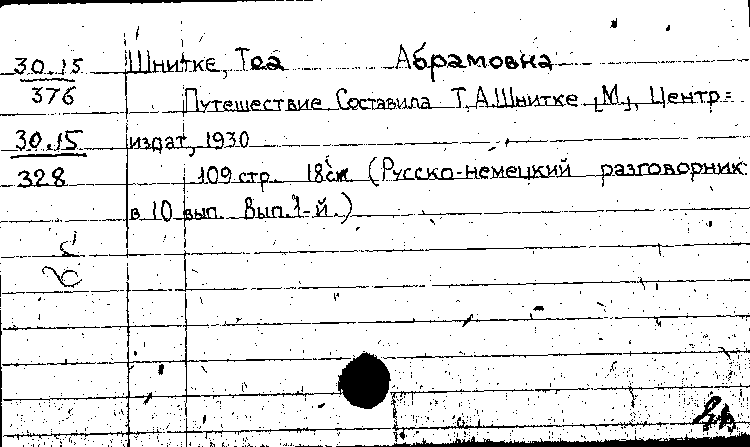 30.15 Шнитке, Теа Абрамовна
376 Путешествие. Составила Т.А.Шнитке. [М], Центр=
30.15 издат, 1930
328 109 стр. 18см. (Русско-немецкий разговорник
в 10 вып. Вып.1-й.)